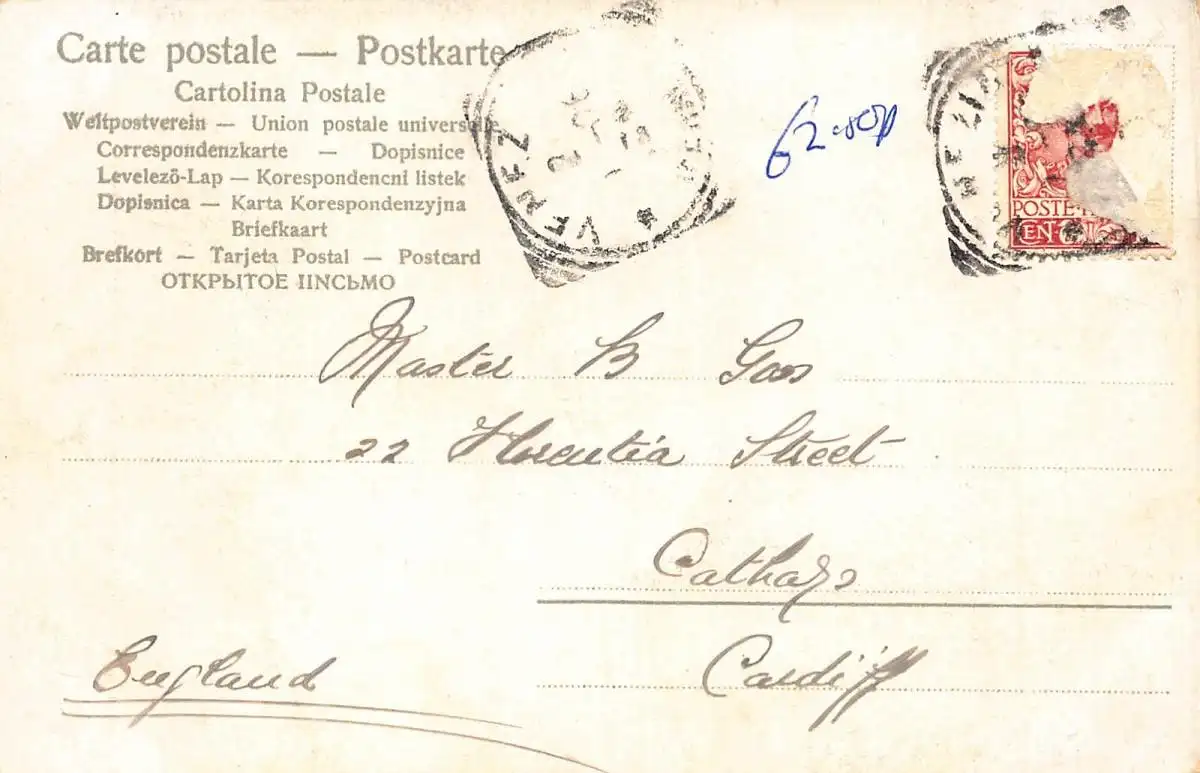 Carte postale — Postkarte
Cartolina Postale
Weltpostverein — Union postale universelle
Correspondenzkarte — Dopisnice
Levelező-Lap — Korespondencni listek
Dopisnica — Karta Korespondenzyjna
Briefkaart
Brefkort — Tarjeta Postal — Postcard
ОТКРЫТОЕ ПИСЬМО
VENEZ
POSTE
CENT
Master B Goss
22 Florentia Street
Cathays
Cardiff
England